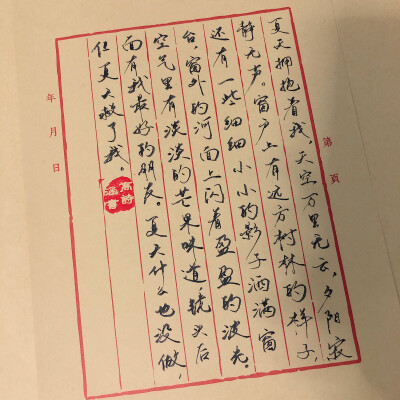 第 頁
夏天拥抱着我，天空万里无云，夕阳寂
静无声。窗户上有远方树林的样子，
还有一些细细小小的影子洒满窗
台，窗外的河面上闪着盈盈的波光。
空气里有淡淡的芒果味道，镜头后
面有我最好的朋友。夏天什么也没做，
但夏天救了我。
年 月 日